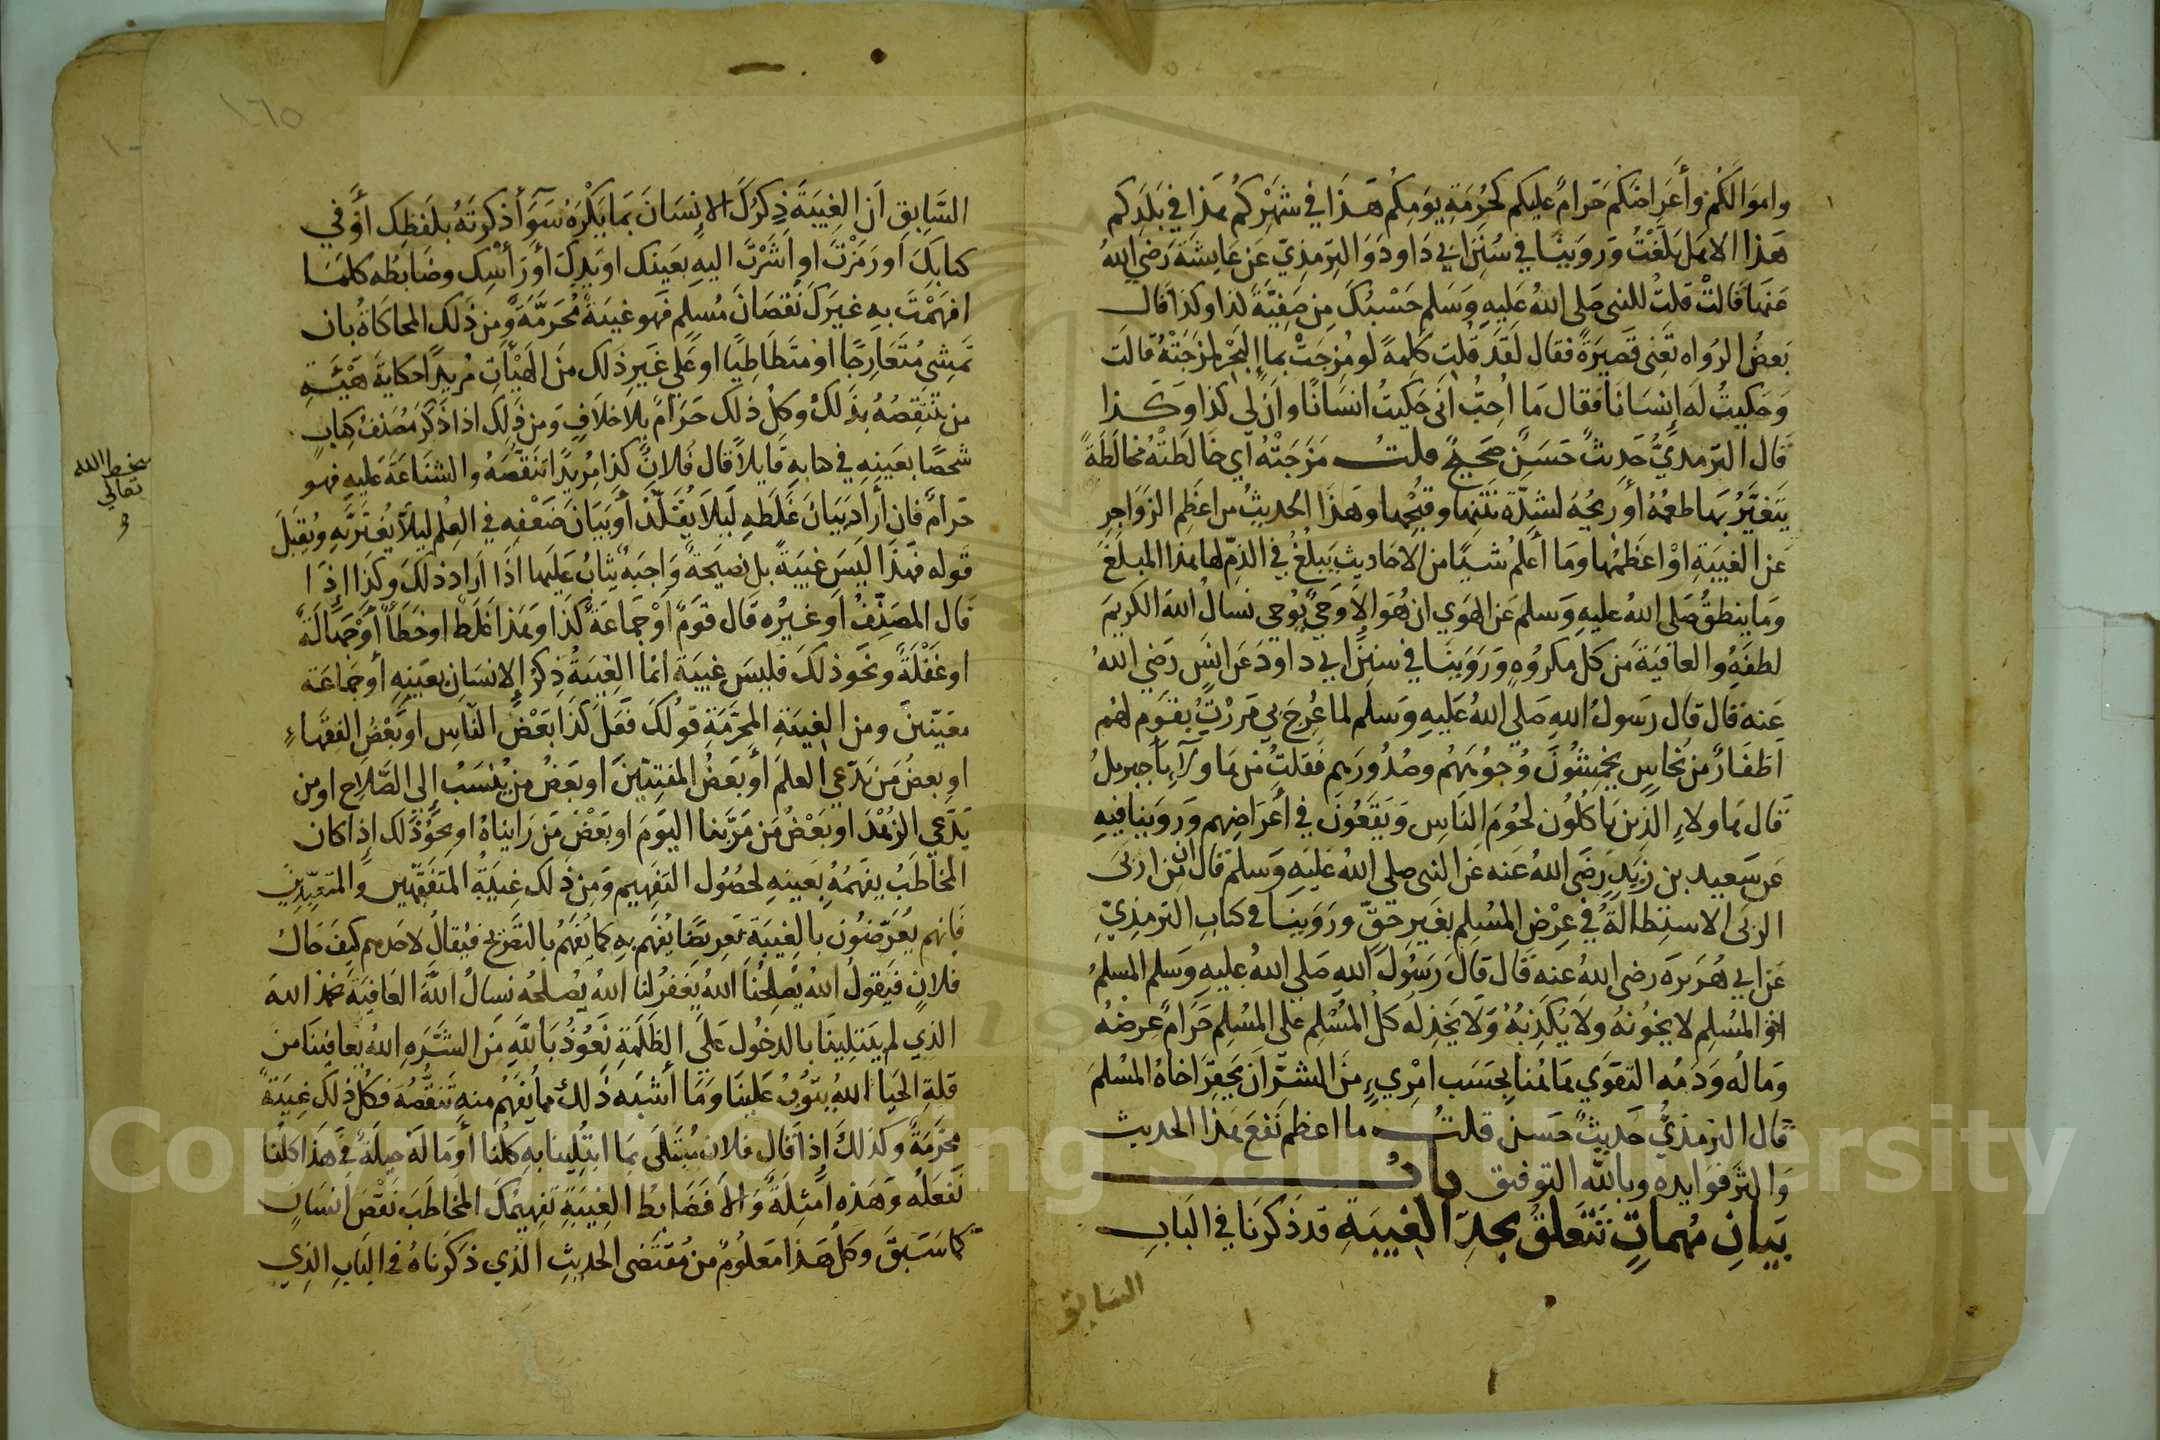 واموالكم وأعراضكم حرام عليكم كحرمة يومكم هذا في شهركم هذا في بلدكم
هذا الا هل بلغت وروينا في سنن ابي داود والترمذي عن عايشة رضي الله
عنها قالت قلت للنبي صلى الله عليه وسلم حسبك من صفية كذا وكذا قال
بعض الرواه تعني قصيرة فقال لقد قلت كلمة لو مزجت بماإ البحر لمزجته قالت
وحكيت له إنسانا فقال ما احب اني حكيت انسانا وان لي كذا وكذا
قال الترمذي حديث حسن صحيح قلت مزجته اي خالطته مخالطة
يتغير بها طعمه أو ريحه لشدة نتنها وقبحها وهذا الحديث من اعظم الزواجر
عن الغيبة او اعظمها وما أعلم شيئا من الاحاديث يبلغ في الذم لها هذا المبلغ
وما ينطق صلى الله عليه وسلم عن الهوي ان هو الا وحي يوحي نسال الله الكريم
لطفه والعافية من كل مكروه وروينا في سنن ابي داود عن انس رضي الله
عنه قال قال رسول الله صلي الله عليه وسلم لما عرج بي مررت بقوم لهم
اظفار من نحاس يخمشون وجوههم وصدورهم فقلت من هاولآء يا جبريل
قال هاولاء الذين يأكلون لحوم الناس ويقعون في أعراضهم وروينا فيه
عن سعيد بن زيد رضي الله عنه عن النبي صلى الله عليه وسلم قال ان من اربى
الربى الاستطالة في عرض المسلم بغير حق وروينا في كتاب الترمذي
عن ابي هريره رضي الله عنه قال قال رسول الله صلى الله عليه وسلم المسلم
اخو المسلم لا يخونه ولا يكذبه ولا يخذله كل المسلم على المسلم حرام عرضه
وماله ودمه التقوي هاهنا بحسب امرىء من الشر أن يحقر اخاه المسلم
قال الترمذي حديث حسن قلت ما اعظم نفع هذا الحديث
واكثر فوايده وبالله التوفيق باب
بيان مهمات تتعلق بحد الغيبة قد ذكرنا في الباب
السابق
١٦٥
السابق ان الغيبة ذكرك الإنسان بما يكره سوآ أذكرته بلفظك أو في
كتابك أو رمزت او أشرت اليه بعينك او يدك أو رأسك وضابطه كلما
افهمت به غيرك نقصان مسلم فهو غيبة محرمة ومن ذلك المحاكاة بان
تمشي متعارجا او متطاطيا او على غير ذلك من الهيأت مريدا حكاية هيئة
من تنقصه بذلك وكل ذلك حرام بلا خلاف ومن ذلك اذا ذكر مصنف كتاب
شخصا بعينه في كتابه قايلا قال فلان كذا مريدا تنقصه والشناعة عليه فهو
حرام فان أراد بيان غلطه ليلا يقلد أو بيان ضعفه في العلم ليلا يغتر به ويقبل
قوله فهذا ليس غيبة بل نصيحة واجبة يثاب عليها اذا أراد ذلك وكذا إذا
قال المصنف أو غيره قال قوم أو جماعة كذا وهذا غلط او خطأ أو جهالة
او غفلة ونحو ذلك فليس غيبة انما الغيبة ذكر الإنسان بعينه أو جماعة
معينين ومن الغيبة المحرمة قولك فعل كذا بعض الناس أو بعض الفقهاء
او بعض من يدعي العلم أو بعض المفتيين او بعض من ينسب إلى الصلاح او من
يدعي الزهد او بعض من مر بنا اليوم او بعض من رايناه او نحو ذلك إذا كان
المخاطب يفهمه بعينه لحصول التفهيم ومن ذلك غيبة المتفقهين والمتعبدين
فإنهم يعرضون بالغيبة تعريضا يفهم به كما يفهم بالتصريح فيقال لاحدهم كيف حال
فلان فيقول الله يصلحنا الله يغفر لنا الله يصلحه نسال الله العافية نحمد الله
الذي لم يبتلينا بالدخول على الظلمة نعوذ بالله من الشره الله يعافينا من
قلة الحيا الله يتوب علينا وما أشبه ذلك مما يفهم منه تنقصه فكل ذلك غيبة
محرمة وكذلك إذا قال فلان مبتلى بما ابتلينا به كلنا أو ماله حيلة في هذا كلنا
نفعله وهذه امثلة والا فضابط الغيبة تفهيمك المخاطب نقص انسان
كما سبق وكل هذا معلوم من مقتضى الحديث الذي ذكرناه في الباب الذي
سخط الله
تعالى
Copyright © King Saud University